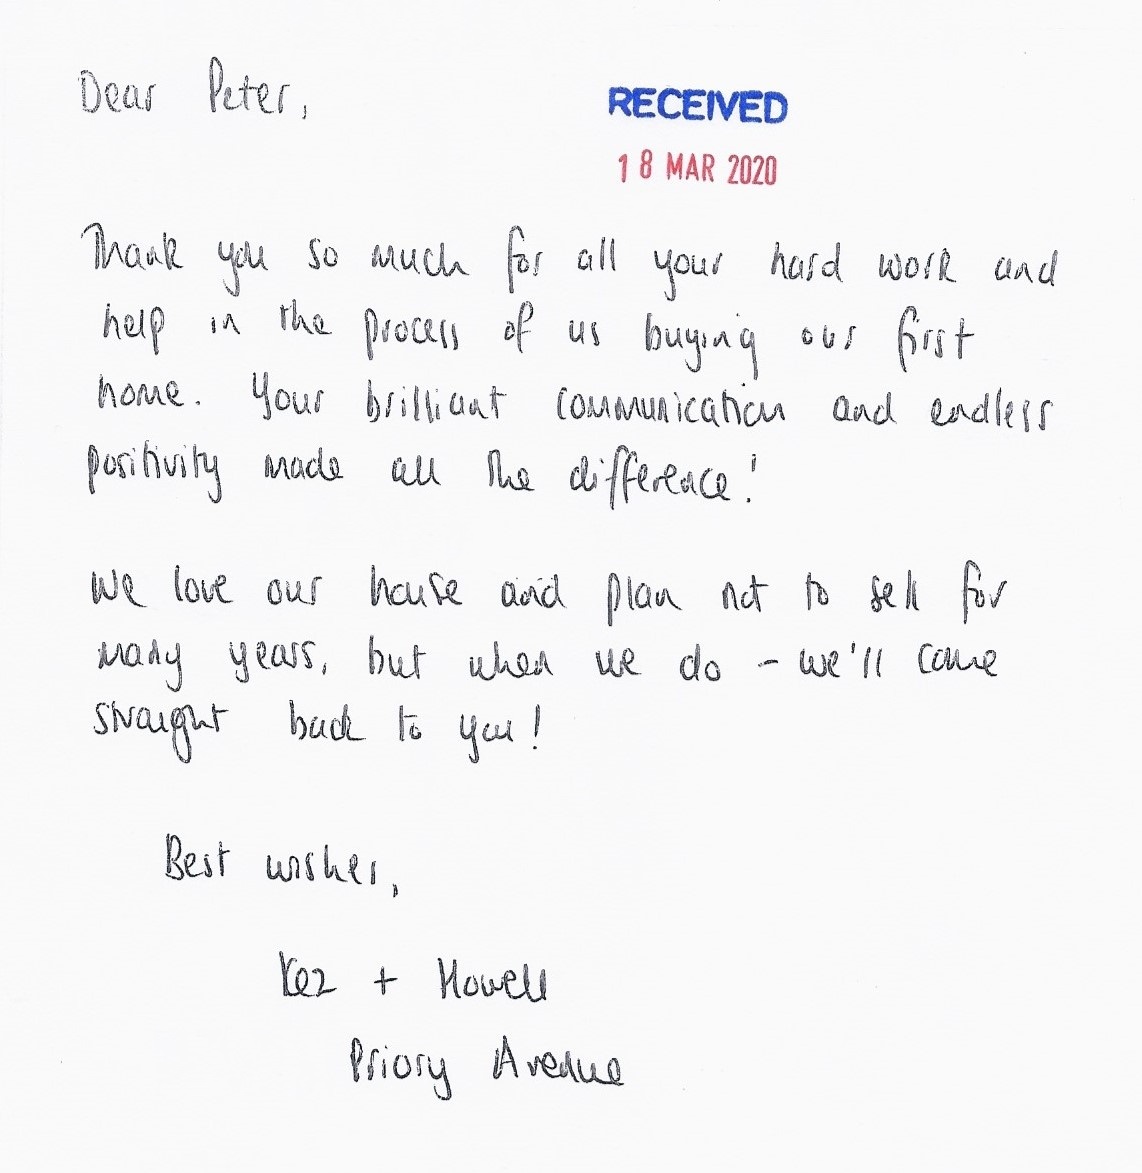 Dear Peter,
RECEIVED
18 MAR 2020
Thank you so much for all your hard work and
help in the process of us buying our first
home. Your brilliant communication and endless
positivity made all the difference!
We love our house and plan not to sell for
many years, but when we do - we'll come
straight back to you!
Best wishes,
Kez + Howell
Priory Avenue